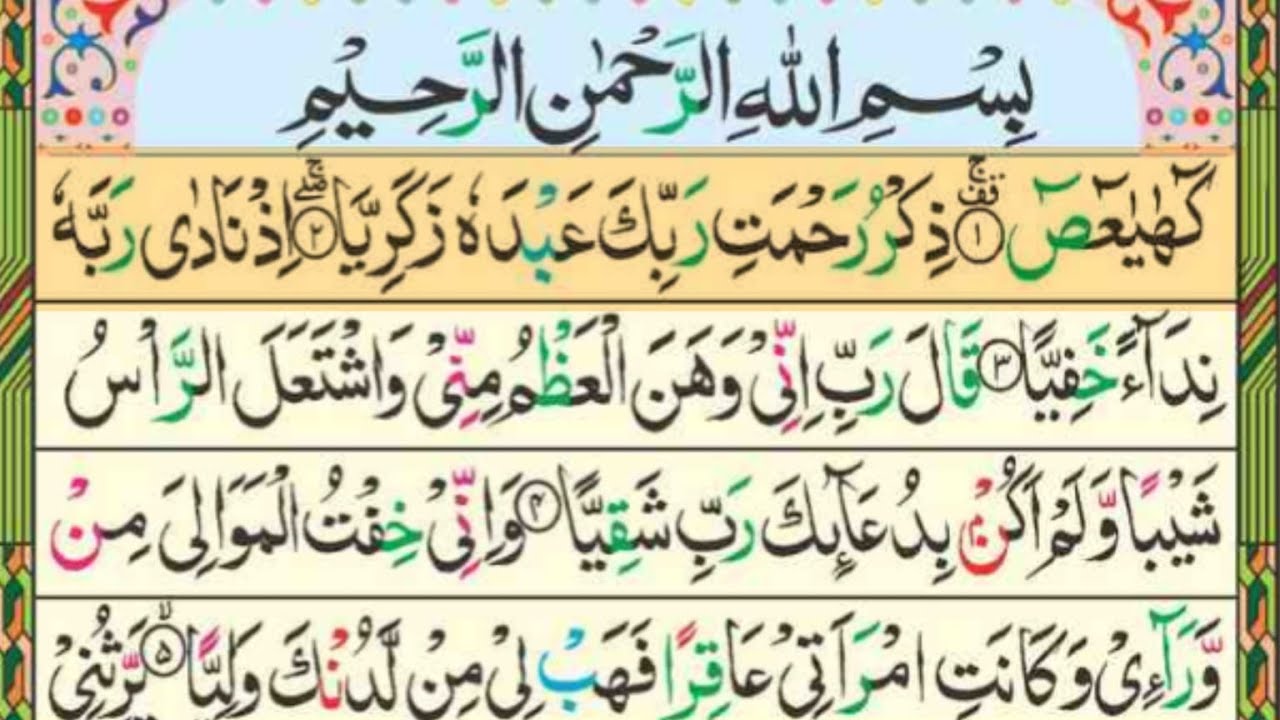 بِسْمِ اللهِ الرَّحْمٰنِ الرَّحِيْمِ
كٓهٰيٰعٓصٓ ۚ۟ ﴿۱﴾ ذِكْرُ رَحْمَتِ رَبِّكَ عَبْدَهٗ زَكَرِيَّا ۖۚ ﴿۲﴾ اِذْ نَادٰى رَبَّهٗ
نِدَآءً خَفِيًّا ﴿۳﴾ قَالَ رَبِّ اِنِّىْ وَهَنَ الْعَظْمُ مِنِّىْ وَاشْتَعَلَ الرَّاْسُ
شَيْبًا وَّلَمْ اَكُنْۢ بِدُعَآئِكَ رَبِّ شَقِيًّا ﴿۴﴾ وَاِنِّىْ خِفْتُ الْمَوَالِىَ مِنْ
وَّرَآءِىْ وَكَانَتِ امْرَاَتِىْ عَاقِرًا فَهَبْ لِىْ مِنْ لَّدُنْكَ وَلِيًّا ۙ ﴿۵﴾ يَّرِثُنِىْ